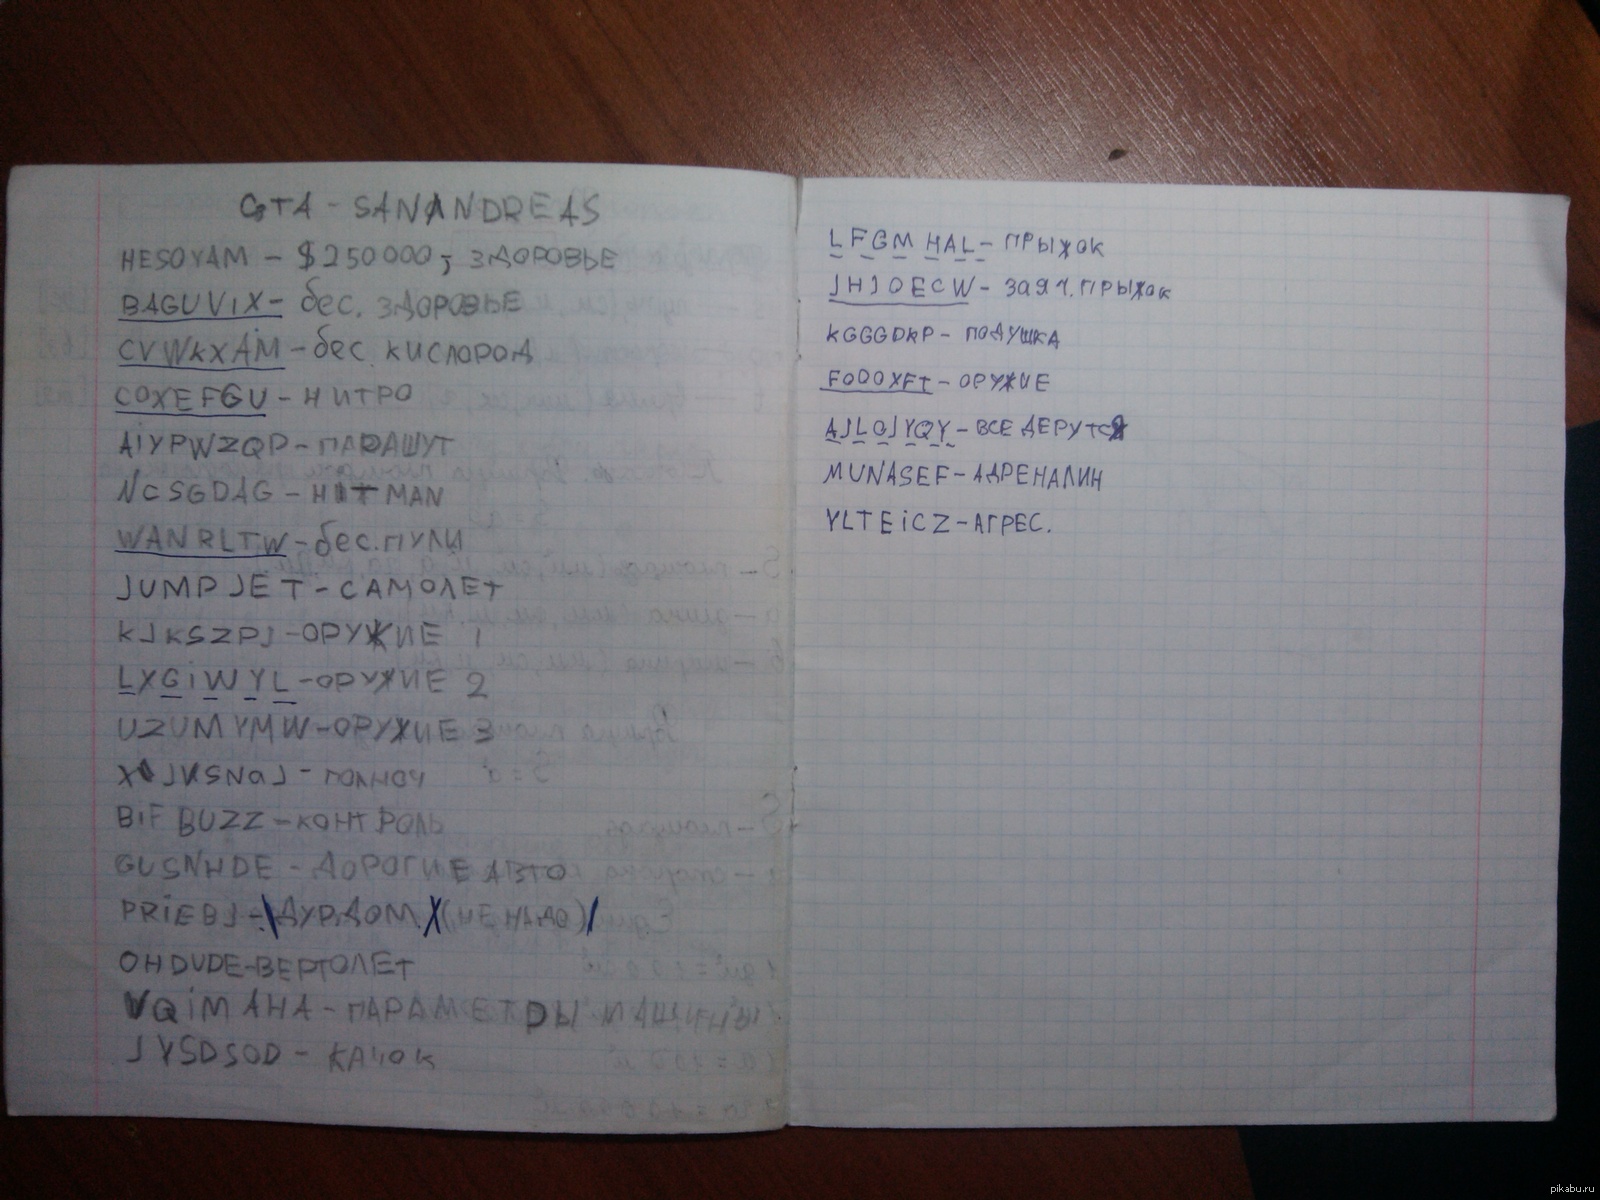 GTA - SANANDREAS
HESOYAM - $250000, ЗДОРОВЬЕ
BAGUViX - бес. ЗДОРОВЬЕ
CVWKXAM - бес КИСЛОРОД
COXEFGU - НИТРО
AiYPWZQP - ПАРАШУТ
NCSGDAG - HITMAN
WANRLTW - бес. ПУЛИ
JUMPJET - САМОЛЕТ
KJKSZPJ - ОРУЖИЕ 1
LXGiWYL - ОРУЖИЕ 2
UZUMYMW - ОРУЖИЕ 3
XJVSNAJ - ПОЛНОЧ
BiFBUZZ - КОНТРОЛЬ
GUSNHDE - ДОРОГИЕ АВТО
PRiEBJ - ДУРДОМ (НЕ НАДО)
OHDUDE - ВЕРТОЛЕТ
VQiMAHA - ПАРАМЕТРЫ МАШИНЫ
JYSDSOD - КАЧОК
LFGMHAL - ПРЫЖОК
JHJOECW - ЗАЯЧ. ПРЫЖОК
KGGGDKP - ПОДУШКА
FOOOXFT - ОРУЖИЕ
AJLOJYQY - ВСЕ ДЕРУТСЯ
MUNASEF - АДРЕНАЛИН
YLTEiCZ - АГРЕС.
pikabu.ru